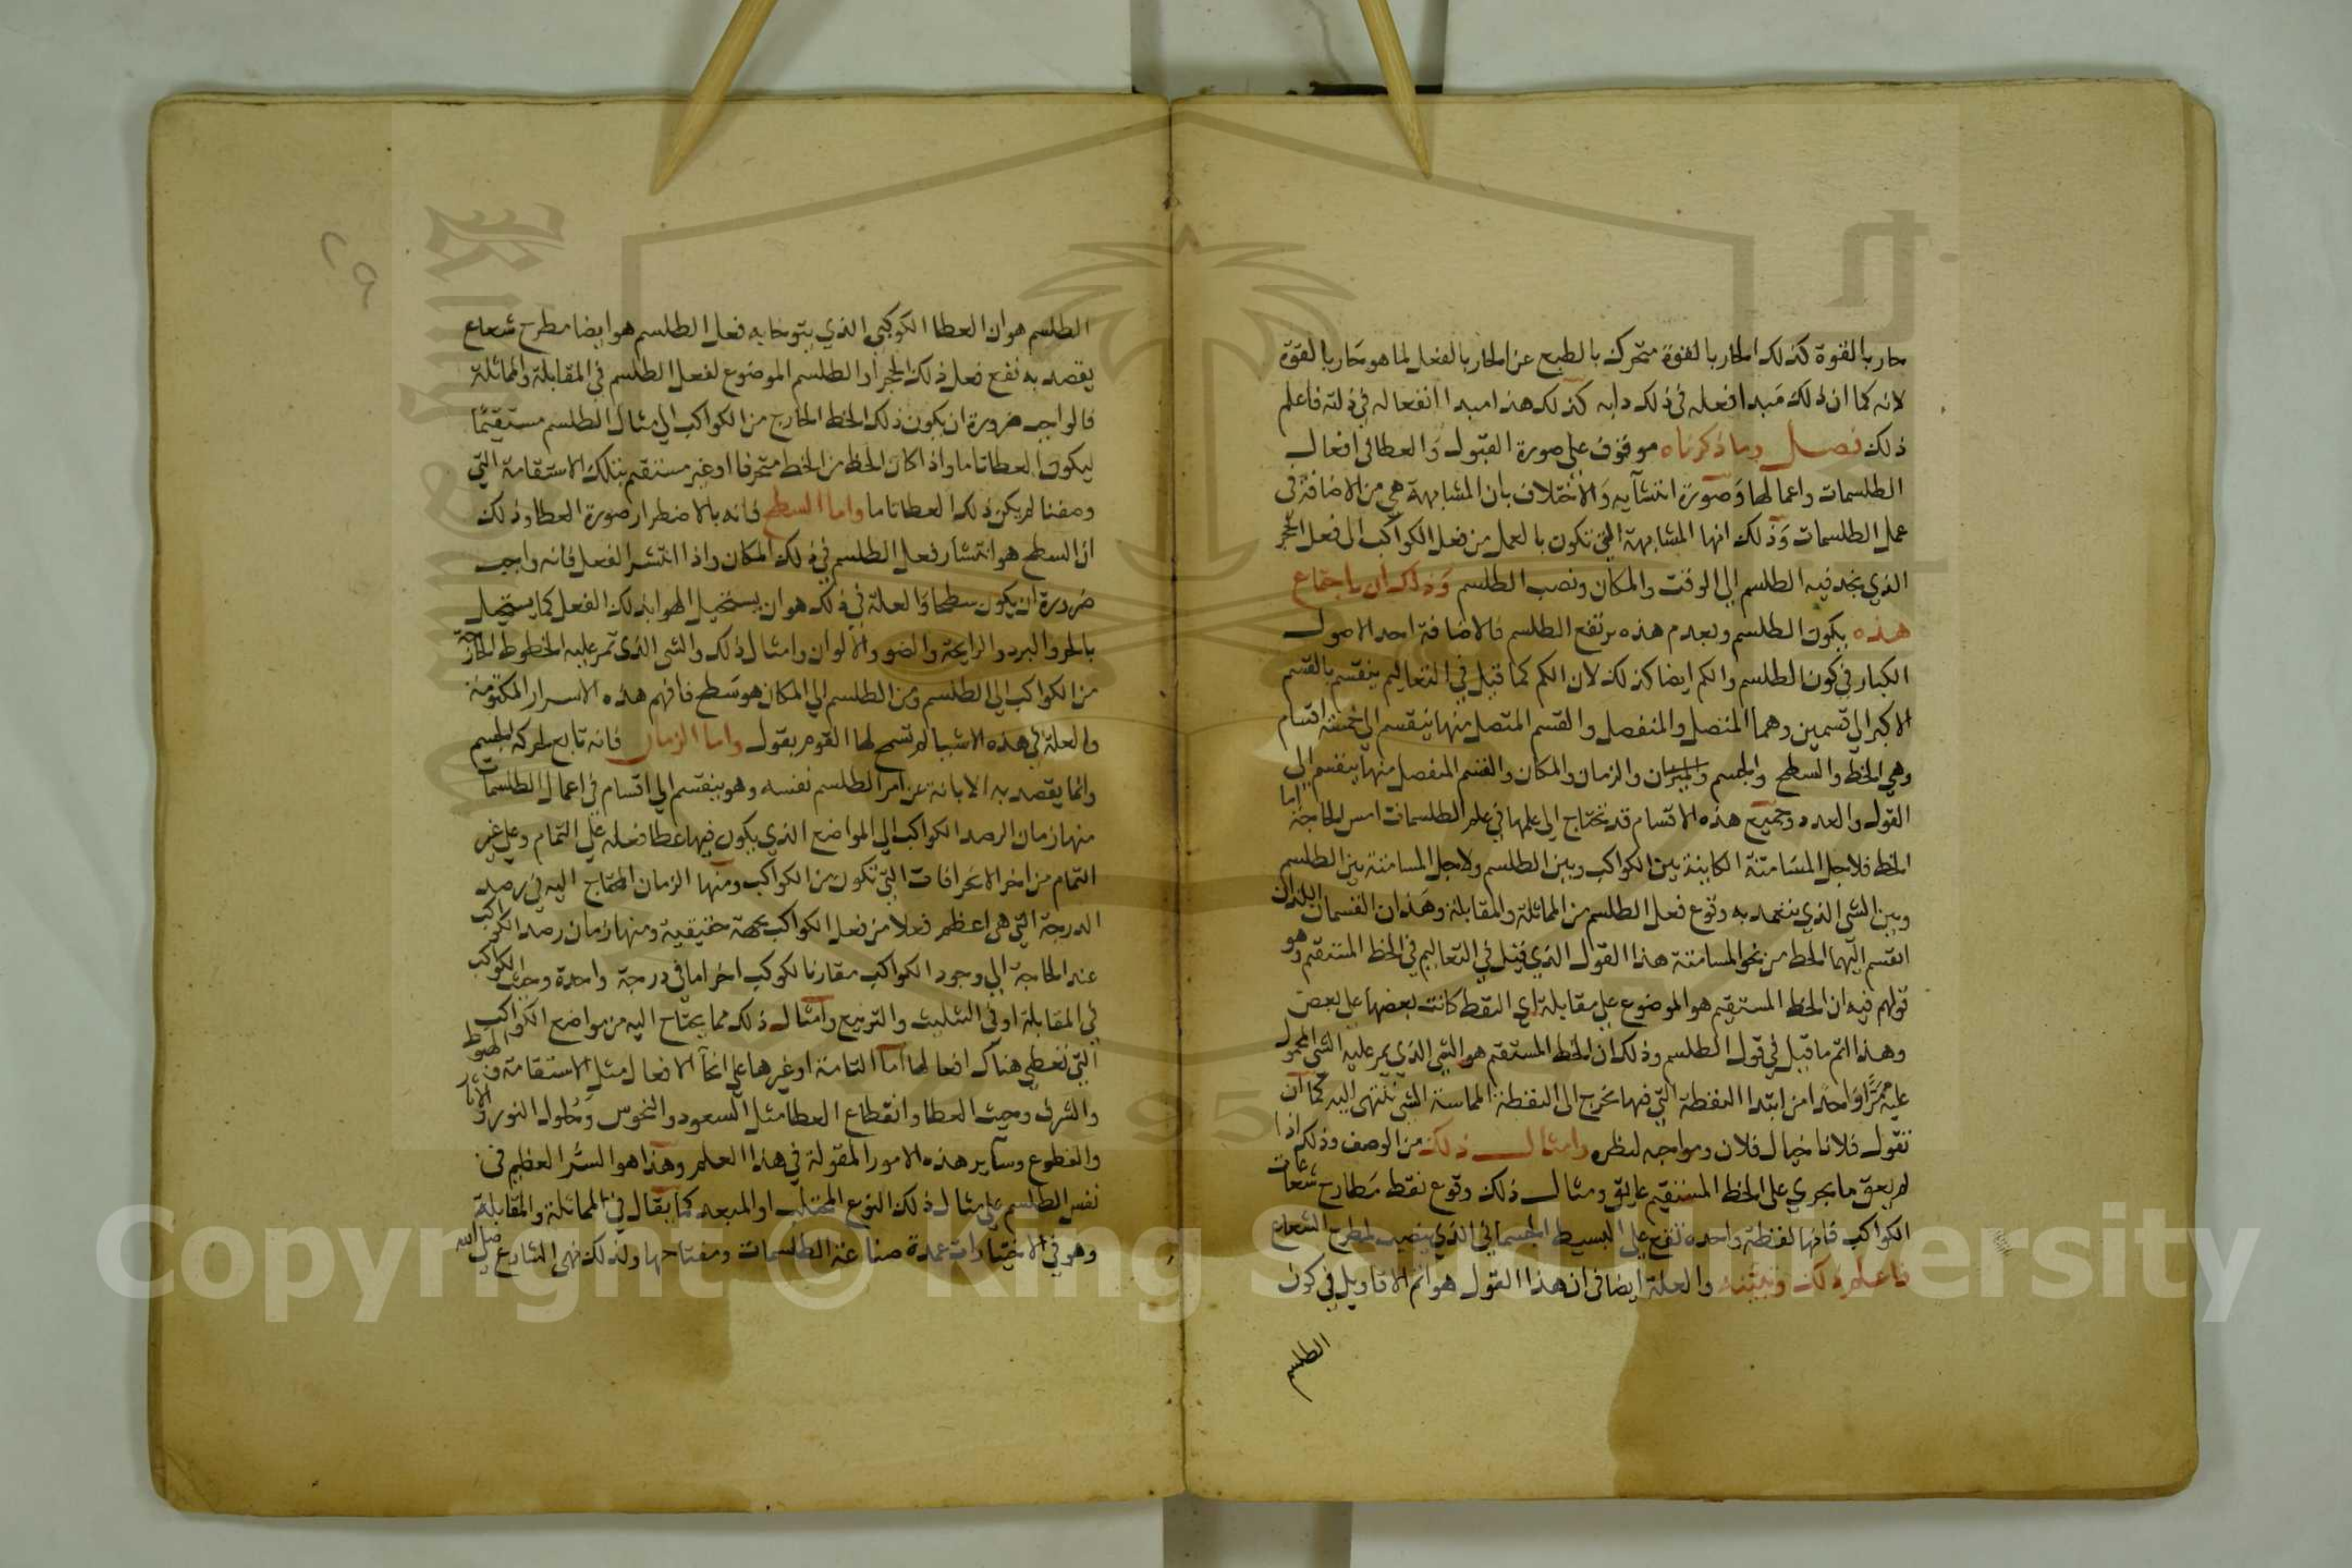 حار بالقوة كذلك الحار بالقوة متحرك بالطبع عن الحار بالفعل لما هو حار بالقوة
لانه كما ان ذلك مبدا فعله في ذلك دايه كذلك هذا مبدا انفعاله في ذلته فاعلم
ذلك فصل وما ذكرناه موقوف على صورة القبول والعطا في افعال
الطلسمات واعمالها وصورة انتشآيه والاختلاف بان المشابهة هي من الاضافة في
عمل الطلسمات وذلك انها المشابهة التي تكون بالعمل من فعل الكواكب الى فعل الحجر
الذي نجد فيه الطلسم الى الوقت والمكان ونصب الطلسم وذلك ان باجتماع
هذه يكون الطلسم وبعدم هذه يرتفع الطلسم فالاضافة احد الاصول
الكبار في كون الطلسم والكم ايضا كذلك لان الكم كما قيل في التعاليم ينقسم بالقسم
الاكبر الى قسمين وهما المتصل والمنفصل والقسم المتصل منها ينقسم الى خمسة اقسام
وهي الخط والسطح والجسم والزمان والمكان والقسم المنفصل منها ينقسم الى
القول والعدد وجميع هذه الاقسام قد تحتاج الى علمها في علم الطلسمات امس الحاجة اما
الخط فلاجل المسامتة الكاينة بين الكواكب وبين الطلسم ولاجل المسامتة بين الطلسم
وبين الشي الذي يعتمد به وقوع فعل الطلسم من المماثلة والمقابلة وهذان القسمان اللذان
انقسم اليهما الخط من نحو المسامتة هذا القول الذي قيل في التعاليم في الخط المستقيم وهو
قولهم فيه ان الخط المستقيم هو الموضوع على مقابلة اي النقط كانت بعضها على بعض
وهذا اتم ما قيل في قول الطلسم وذلك ان الخط المستقيم هو الشي الذي يمر عليه الشي المحمول
عليه ممرا واحدا من ابتدا النقطة التي فيها تخرج الى النقطة المماسة التي تنتهي اليه كما ان
نقول فلانا خيال فلان ومواجه لنظره وامثال ذلك من الوصف وذلك اذا
لم يعق ما يجري على الخط المستقيم عايق ومثال ذلك وقوع نقط مطارح شعاعات
الكواكب فانها لنقطة واحدة تقع على البسيط الجسماني الذي ينصب لمطرح الشعاع
فاعلم ذلك وتبينه والعلة ايضا في ان هذا القول هو اتم الاقاويل في كون
الطلسم
٢٩
الطلسم هو ان العطا الكوكبي الذي يتوخا به فعل الطلسم هو ايضا مطرح شعاع
يقصد به نفع فعل ذلك الحجر او الطلسم الموضوع لفعل الطلسم في المقابلة والمماثلة
فالواجب ضرورة ان يكون ذلك الخط الخارج من الكواكب الى مثال الطلسم مستقيما
ليكون العطا تاما واذا كان الخط من الخط متحرفا او غير مستقيم بتلك الاستقامة التي
وصفنا لم يكن ذلك العطا تاما واما السطح فانه بالاضطرار صورة العطا وذلك
ان السطح هو انتشار فعل الطلسم في ذلك المكان واذا انتشر الفعل فانه واجب
ضرورة ان يكون سطحا والعلة في ذلك هو ان يستحيل الهوا بذلك الفعل كما يستحيل
بالحر والبرد والرايحة والضو والالوان وامثال ذلك والشي الذي تمر عليه الخطوط الخارجة
من الكواكب الى الطلسم ومن الطلسم الى المكان هو سطح فافهم هذه الاسرار المكتومة
والعلة في هذه الاشيا لم تسمح لها القوم بقول واما الزمان فانه تابع لحركة الجسم
وانما يقصد به الابانة عن امر الطلسم نفسه وهو ينقسم الى اقسام في اعمال الطلسمات
منها زمان الرصد الكواكب الى المواضع الذي يكون فيها عطا فعله على التمام وعلى غير
التمام من اخر الانحرافات التي تكون من الكواكب ومنها الزمان المحتاج اليه في رصد
الدرجة التي هي اعظم فعلا من فعل الكواكب بجهة حقيقية ومنها زمان رصد الكواكب
عند الحاجة الى وجود الكواكب مقارنا لكوكب اخر اما في درجة واحدة وحيث الكواكب
في المقابلة او في التثليث والتربيع وامثال ذلك مما يحتاج اليه من مواضع الكواكب
التي تعطي هناك افعالها اما التامة او غيرها على انحآ الافعال مثل الاستقامة والهبوط
والشرف وحيث العطا وانقطاع العطا مثل السعود والنحوس وحلول النور
والقطوع وساير هذه الامور المقولة في هذا العلم وهذا هو السر العظيم في
نفس الطلسم على مثال ذلك النوع المجتلب او المبعد كما يقال في المماثلة والمقابلة
وهو في الاختيارات عمدة صناعة الطلسمات ومفتاحها ولذلك نهى الشارع صلى الله